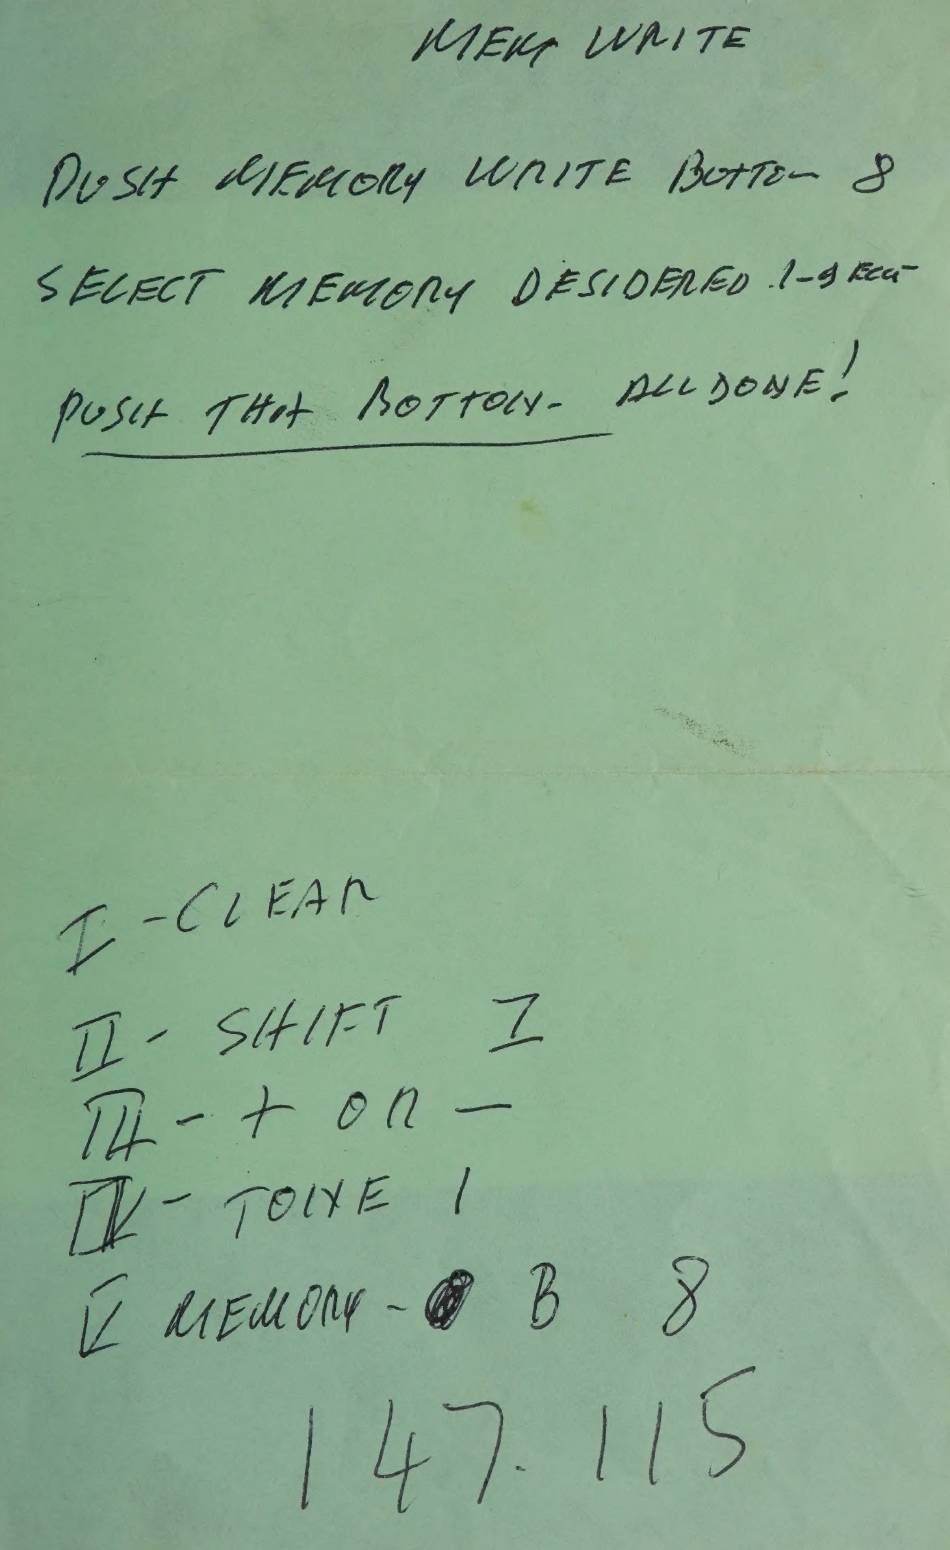 MEM WRITE
PUSH MEMORY WRITE BOTTON 8
SELECT MEMORY DESIDERED 1-9
PUSH THAT BOTTON - ALL DONE!
I - CLEAR
II - SHIFT I
III - + OR -
IV - TONE 1
V MEMORY - B 8
147.115